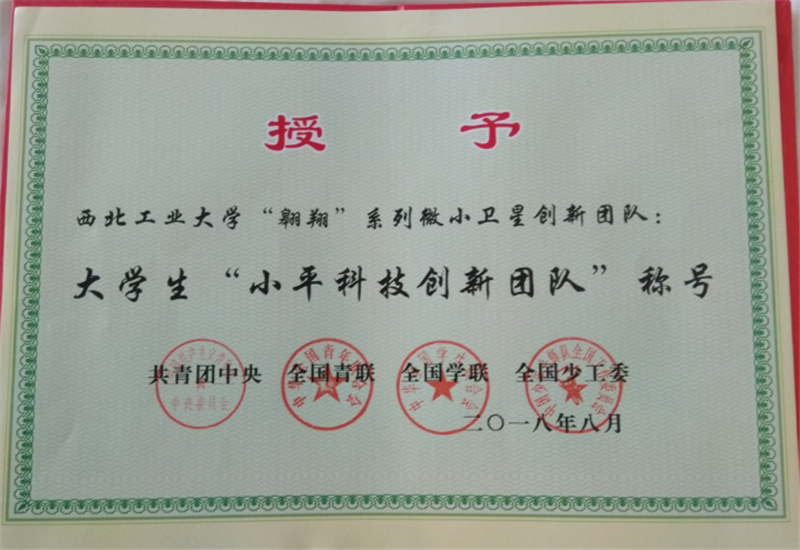 授 予
西北工业大学“翱翔”系列微小卫星创新团队：
大学生“小平科技创新团队”称号
共青团中央 全国青联 全国学联 全国少工委
二〇一八年八月